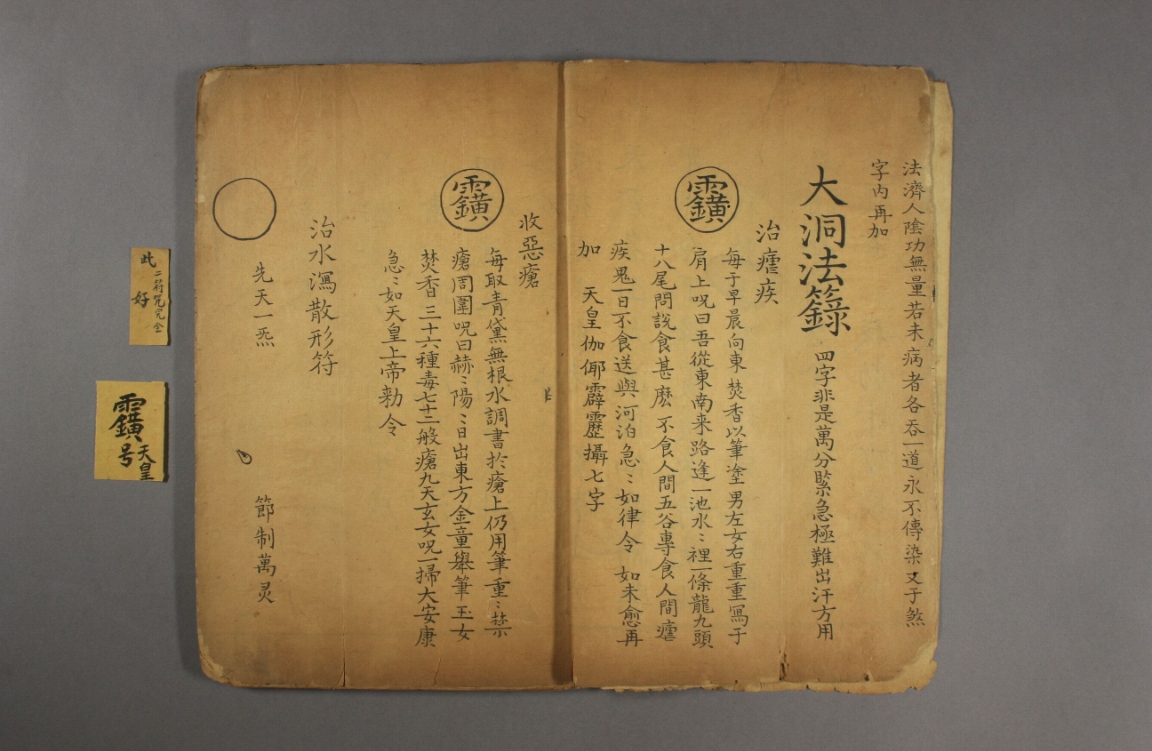 法濟人陰功無量若未病者各吞一道永不傳染又于煞
字内再加
大洞法籙 四字非是萬分緊急極難出汗方用
治瘧疾
每于早晨向東焚香以筆塗男左女右重重寫于
肩上呪曰吾從東南来路逢一池水〻裡一條龍九頭
十八尾問說食甚麽不食人間五谷專食人間瘧
疾鬼一日不食送與河泊急〻如律令 如未愈再
加 天皇伽㑘霹靂攝七字
收惡瘡
每取青黛無根水調書於瘡上仍用筆重〻禁
瘡周圍呪曰赫〻陽〻日出東方金童舉筆玉女
焚香三十六種毒七十二般瘡九天玄女呪一掃大安康
急〻如天皇上帝勑令
治水瀉散形符
先天一炁
節制萬灵
此二符咒完全
好
天皇
号